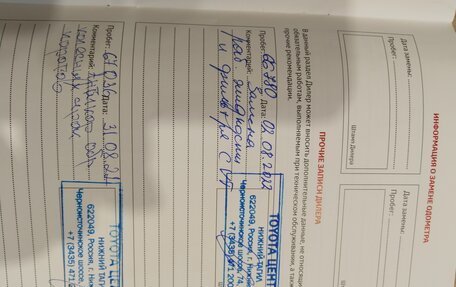 ИНФОРМАЦИЯ О ЗАМЕНЕ ОДОМЕТРА
Дата замены:
Пробег:
Штамп Дилера
Дата замены:
Пробег:
ПРОЧИЕ ЗАПИСИ ДИЛЕРА
В данный раздел Дилер может вносить дополнительные данные, не относящиеся
обязательным работам, выполняемым при техническом обслуживании, а также
прочие рекомендации.
Пробег: 66780 Дата: 02.08.2022
Комментарий: Замена
и фильтра
TOYOTA ЦЕНТ
НИЖНИЙ ТАГИЛ
622049, Россия, г. Нижн
Черноисточинское шоссе, 74,
+7 (3435) 471 200
Пробег: 67036 Дата: 31.08.22
Комментарий:
TOYOTA ЦЕН
НИЖНИЙ ТАГИЛ
622049, Россия, г. Ниж
Черноисточинское шоссе,
+7 (3435) 471 2